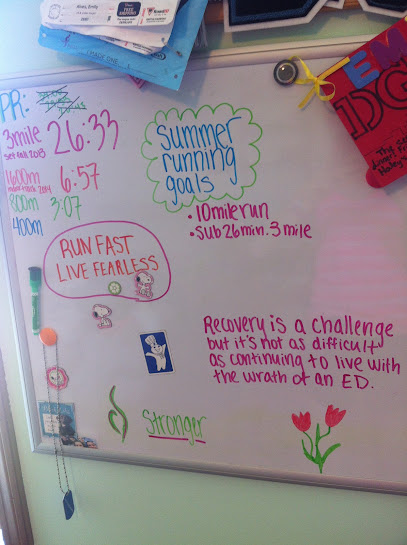 PR:
3mile 26:33
set fall 2013
1600m 6:57
800m 3:07
400m
Summer
running
goals
• 10mile run
• Sub 26min. 3 mile
RUN FAST
LIVE FEARLESS
Recovery is a challenge
but it's not as difficult
as continuing to live with
the wrath of an ED.
Stronger